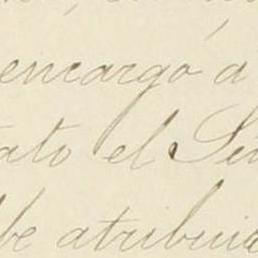 encargó á
ato el Se
be atribui